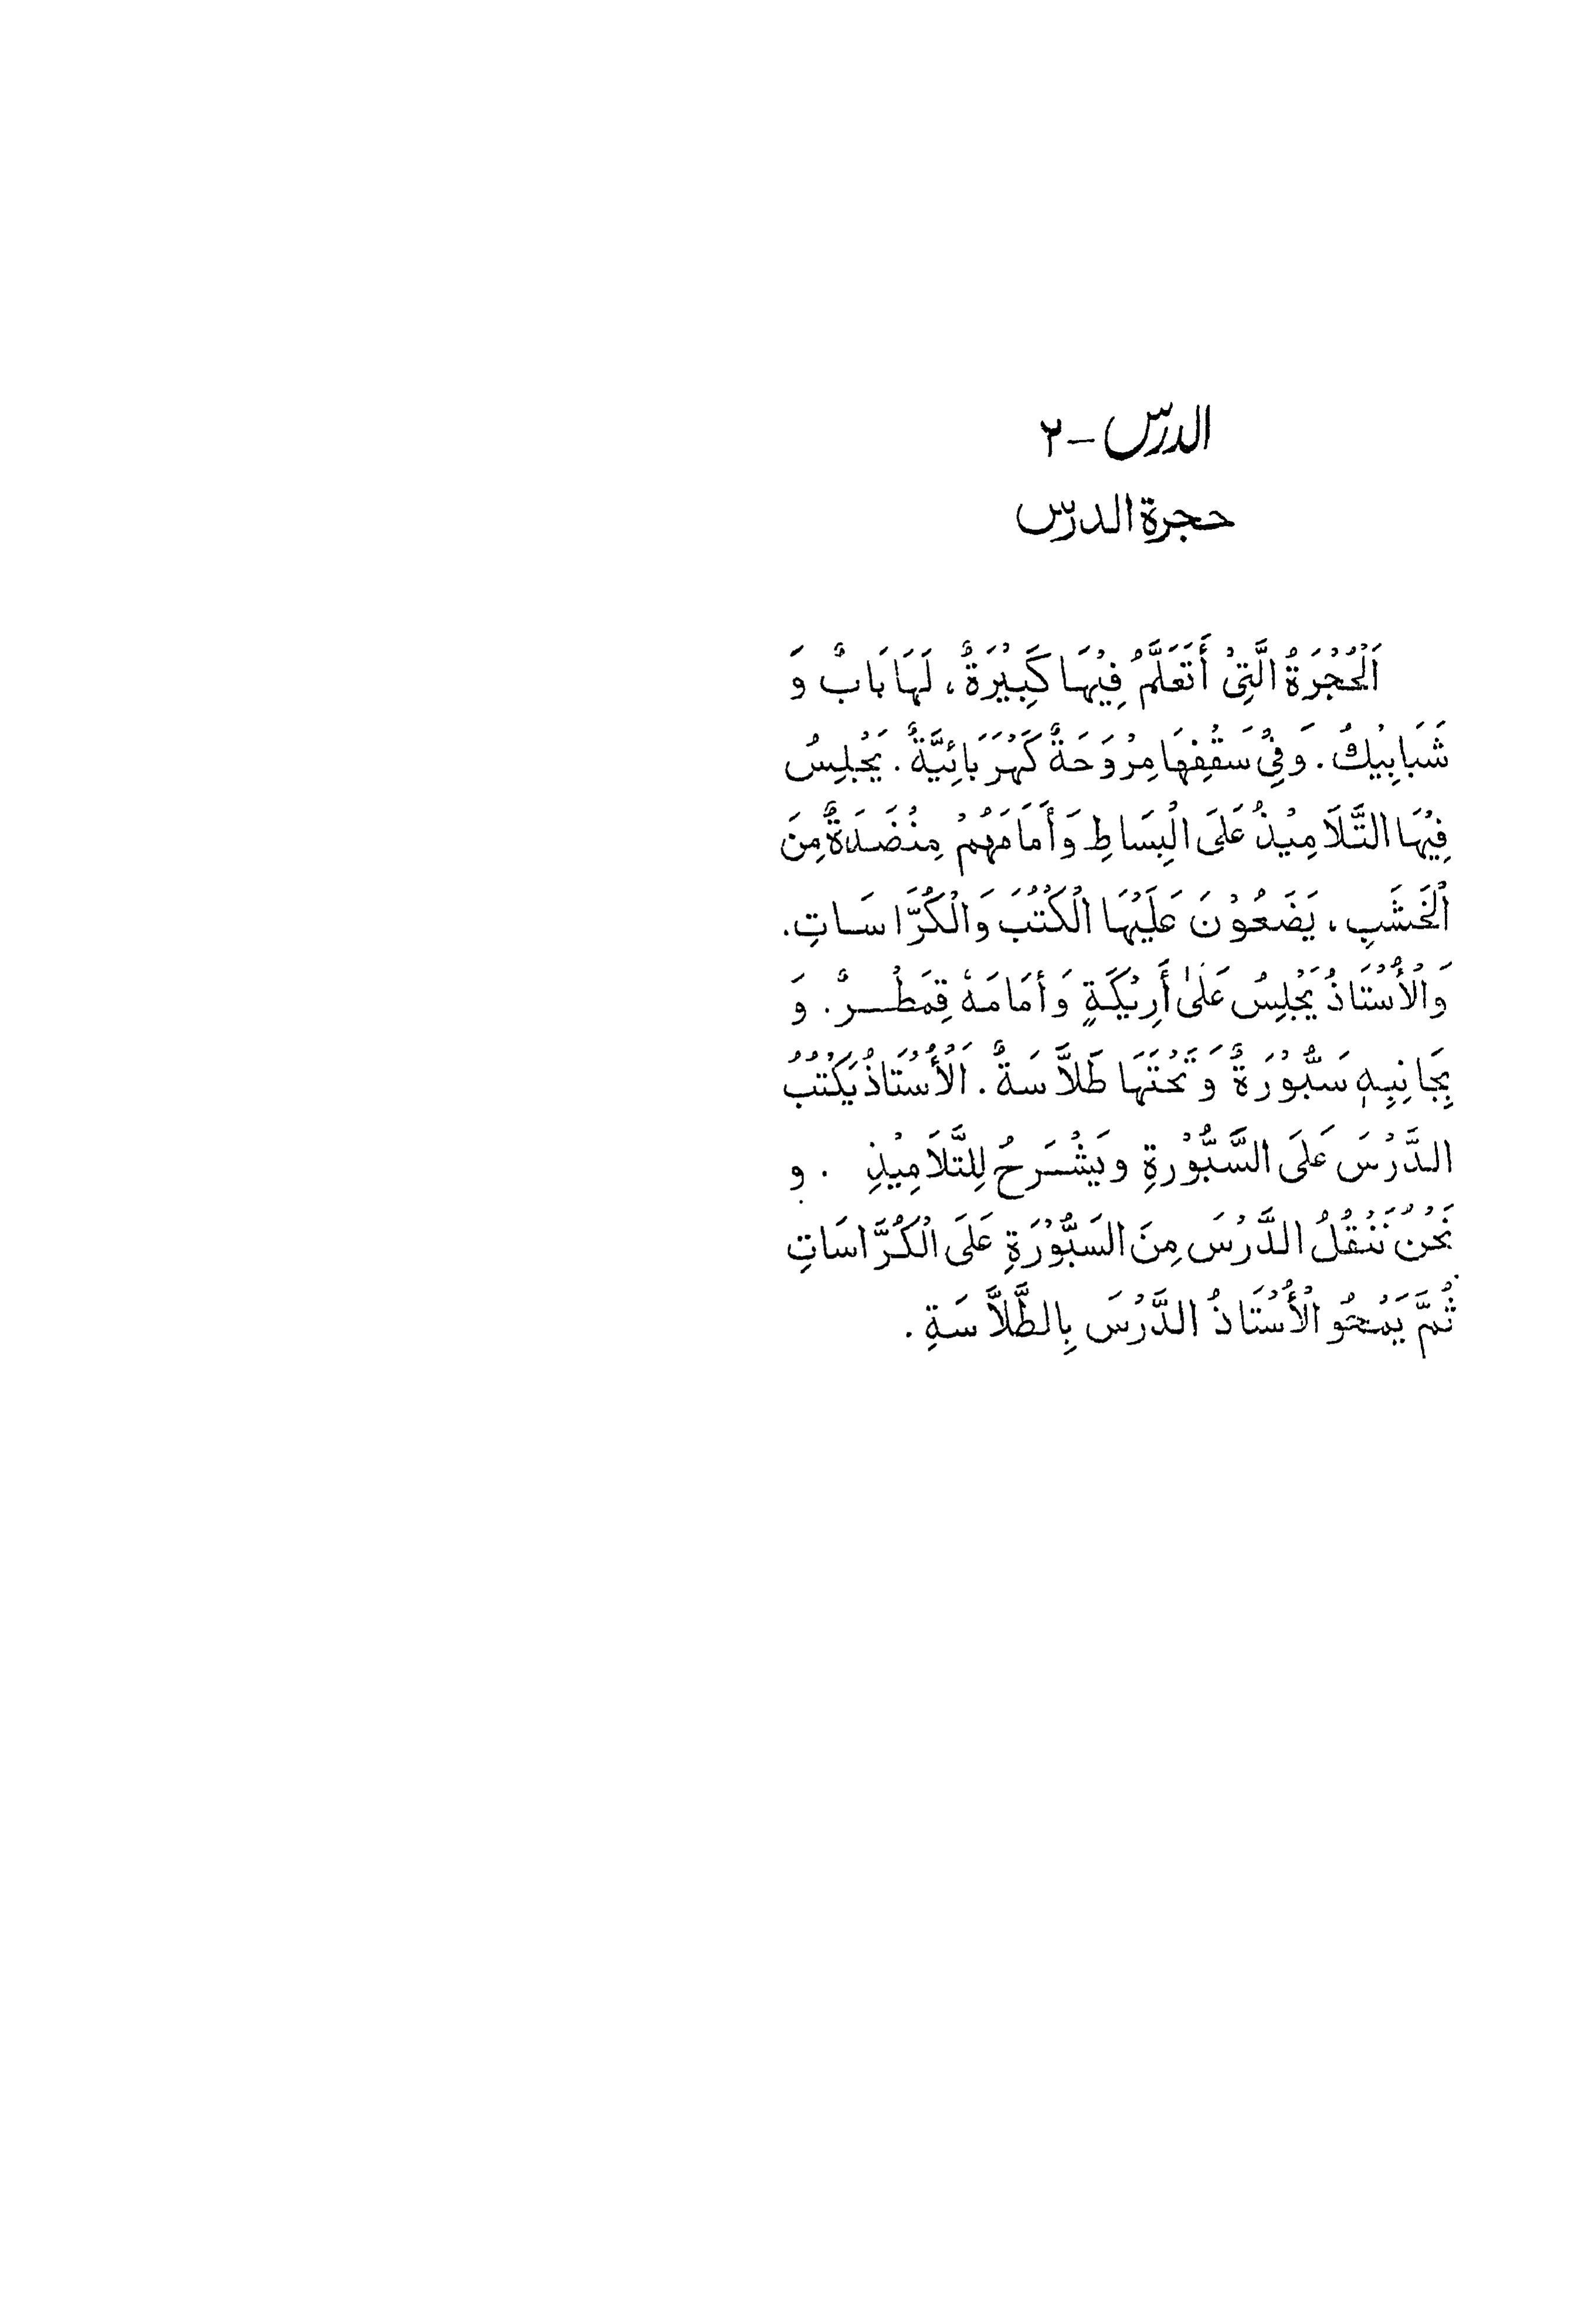 الدرس - ٢
حجرة الدرس
اَلْحُجْرَةُ الَّتِيْ أَتَعَلَّمُ فِيْهَا كَبِيْرَةٌ، لَهَا بَابٌ وَ
شَبَابِيْكُ. وَفِيْ سَقْفِهَا مِرْوَحَةٌ كَهْرَبَائِيَّةٌ. يَجْلِسُ
فِيْهَا التَّلَامِيْذُ عَلَى الْبِسَاطِ وَأَمَامَهُمْ مِنْضَدَةٌ مِنَ
الْخَشَبِ، يَضَعُوْنَ عَلَيْهَا الْكُتُبَ وَالْكُرَّاسَاتِ.
وَالْأُسْتَاذُ يَجْلِسُ عَلٰى أَرِيْكَةٍ وَأَمَامَهٗ قِمَطْرٌ. وَ
بِجَانِبِهٖ سَبُّوْرَةٌ وَتَحْتَهَا طَلَّاسَةٌ. اَلْأُسْتَاذُ يَكْتُبُ
الدَّرْسَ عَلَى السَّبُّوْرةِ ويَشْرَحُ لِلتَّلَامِيْذِ. و
نَحْنُ نَنْقُلُ الدَّرْسَ مِنَ السَبُّوْرَةِ عَلَى الْكُرَّاسَاتِ
ثُمَّ يَمْحُو الْأُسْتَاذُ الدَّرْسَ بِالطَّلَّاسَةِ.